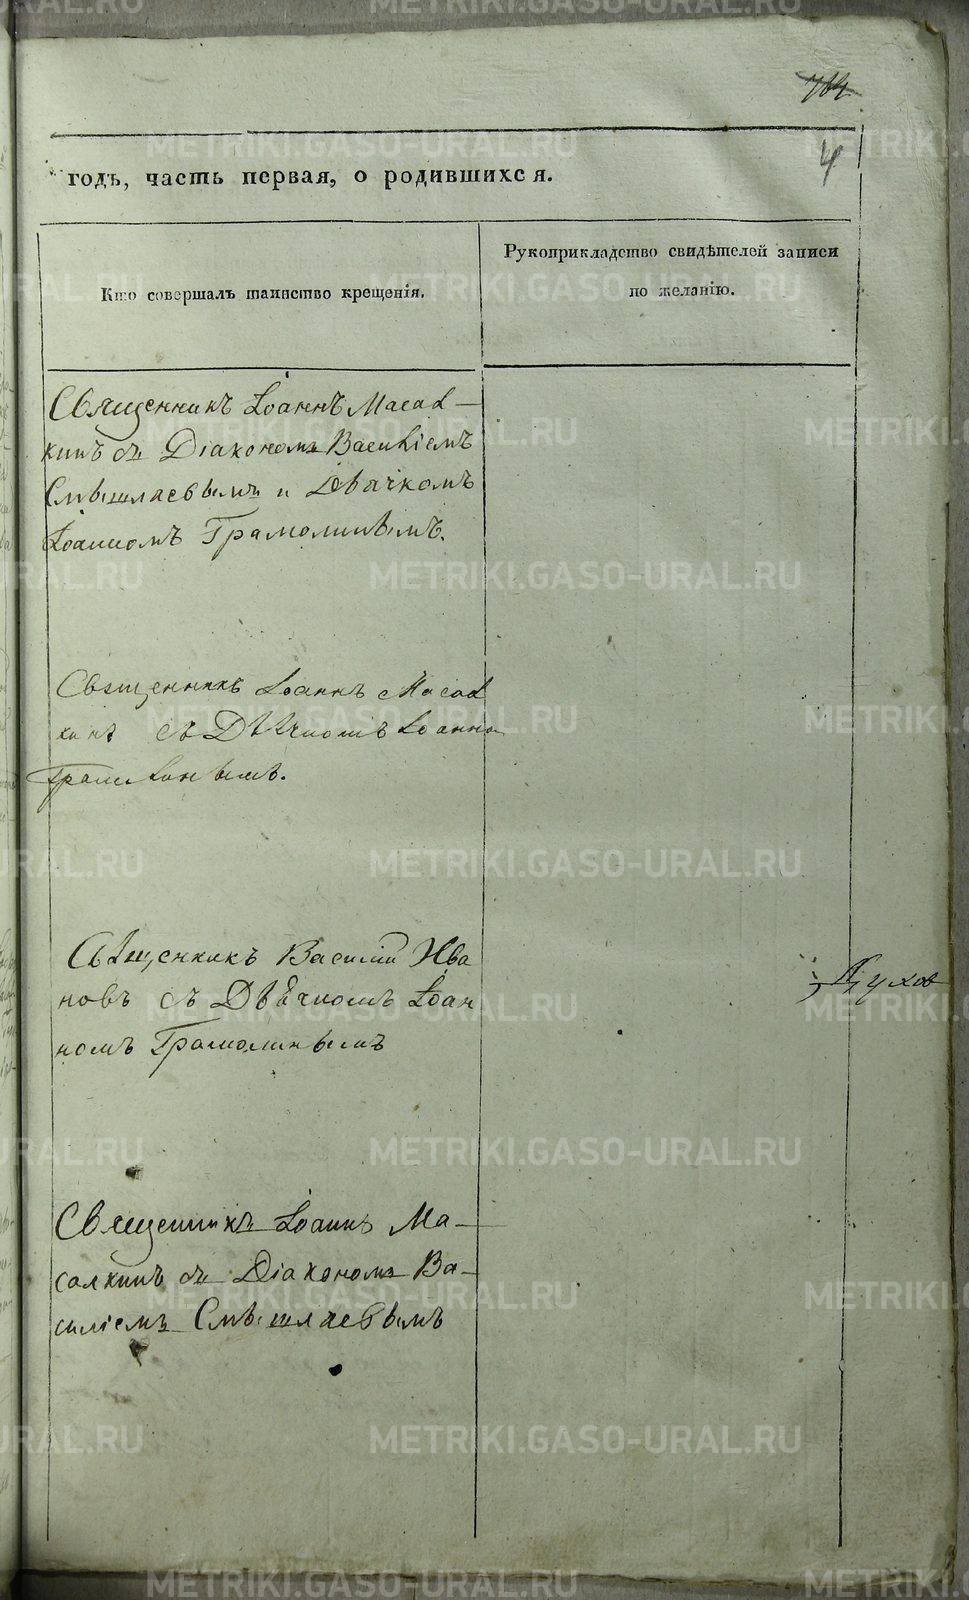 4
годъ, часть первая, о родившихся.
Кто совершалъ таинство крещенія.
Рукоприкладство свидѣтелей записи
по желанію.
Священникъ Іоаннъ Масал-
кинъ съ Діакономъ Василіемъ
Смышлаевымъ и Дьячкомъ
Іоанномъ Грамолинымъ.
Священникъ Іоаннъ Масал
кинъ съ Дьячкомъ Іоанно
Грамолинымъ.
Священникъ Василій Ива
новъ съ Дьячкомъ Іоан
номъ Грамолинымъ
Священникъ Іоаннъ Ма-
салкинъ съ Діакономъ Ва-
силіемъ Смышлаевымъ
METRIKI.GASO-URAL.RU